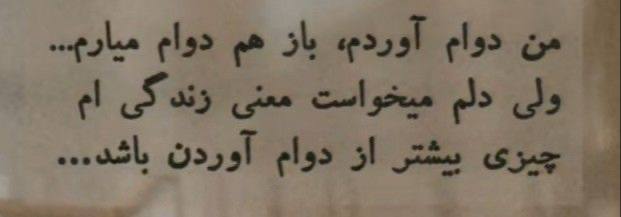 من دوام آوردم، باز هم دوام میارم...
ولی دلم میخواست معنی زندگی ام
چیزی بیشتر از دوام آوردن باشد...